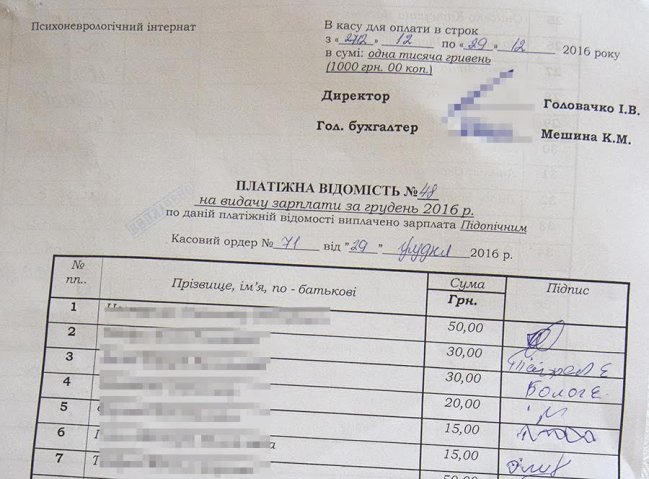 Психоневрологічний інтернат
В касу для оплати в строк
з « » 12 по «29» 12 2016 року
в сумі: одна тисяча гривень
(1000 грн. 00 коп.)
Директор Головачко І.В.
Гол. бухгалтер Мешина К.М.
ПЛАТІЖНА ВІДОМІСТЬ № 48
на видачу зарплати за грудень 2016 р.
по даній платіжній відомості виплачено зарплата Підопічним
Касовий ордер № 71 від "29" грудня 2016 р.
№ пп.. Прізвище, ім'я, по - батькові Сума Грн. Підпис
1 50,00
2 30,00
3 30,00
4 20,00
5 15,00
6 15,00
7